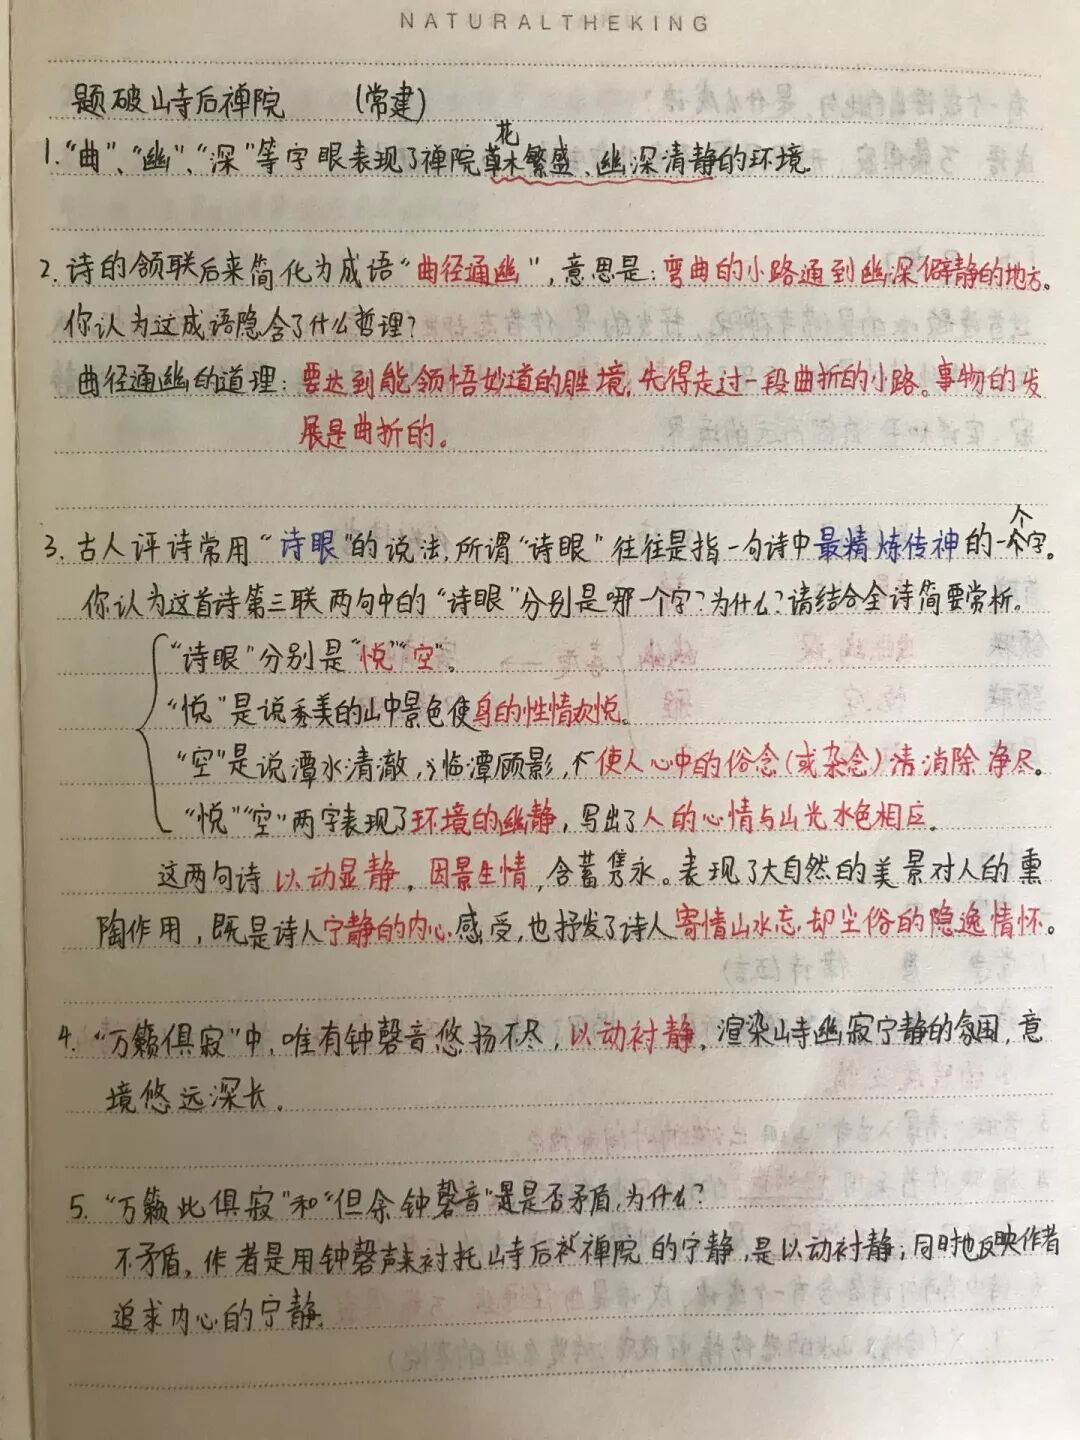 NATURALTHEKING
题破山寺后禅院 (常建)
花
1.“曲”、“幽”、“深”等字眼表现了禅院草木繁盛、幽深清静的环境.
2.诗的颔联后来简化为成语“曲径通幽”,意思是:弯曲的小路通到幽深僻静的地方。
你认为这成语隐含了什么哲理?
曲径通幽的道理:要达到能领悟妙道的胜境,先得走过一段曲折的小路。事物的发
展是曲折的。
个
3.古人评诗常用“诗眼”的说法,所谓“诗眼”往往是指一句诗中最精炼传神的一个字。
你认为这首诗第三联两句中的“诗眼”分别是哪一个字?为什么?请结合全诗简要赏析。
“诗眼”分别是“悦”“空”。
“悦”是说秀美的山中景色使身的性情欢悦。
“空”是说潭水清澈,临潭顾影,使人心中的俗念(或杂念)清消除净尽。
“悦”“空”两字表现了环境的幽静,写出了人的心情与山光水色相应。
这两句诗以动显静,因景生情,含蓄隽永。表现了大自然的美景对人的熏
陶作用,既是诗人宁静的内心感受,也抒发了诗人寄情山水忘却尘俗的隐逸情怀。
4.“万籁俱寂”中,唯有钟磬音悠扬不尽,以动衬静,渲染山寺幽寂宁静的氛围,意
境悠远深长.
5.“万籁此俱寂”和“但余钟磬音”是是否矛盾,为什么?
不矛盾,作者是用钟磬声来衬托山寺后禅院的宁静,是以动衬静;同时也反映作者
追求内心的宁静.